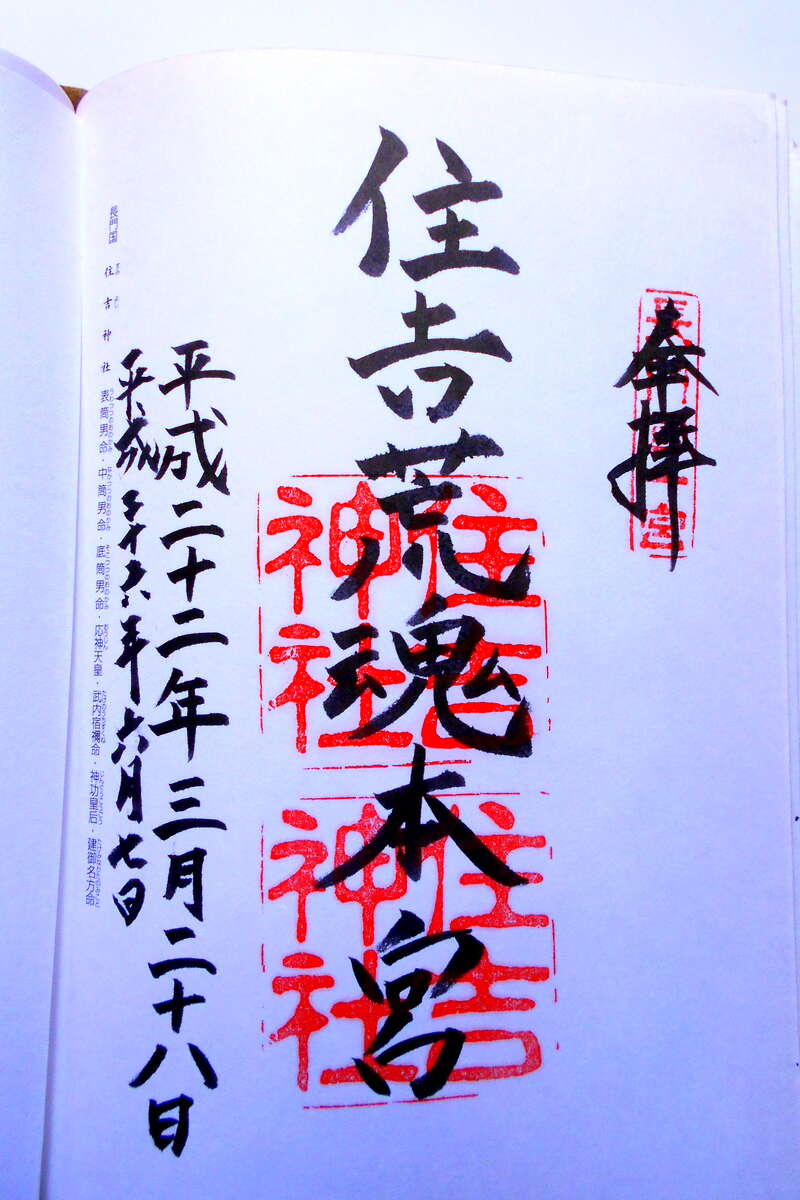 奉拝
住吉荒魂本宮
住吉神社
住吉神社
平成二十二年三月二十八日
平成二十六年六月七日
長門国 住吉神社 表筒男命・中筒男命・底筒男命・応神天皇・武内宿禰命・神功皇后・建御名方命